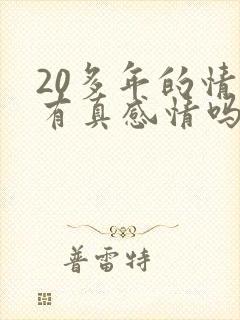 20多年的情
有真感情吗
普雷特